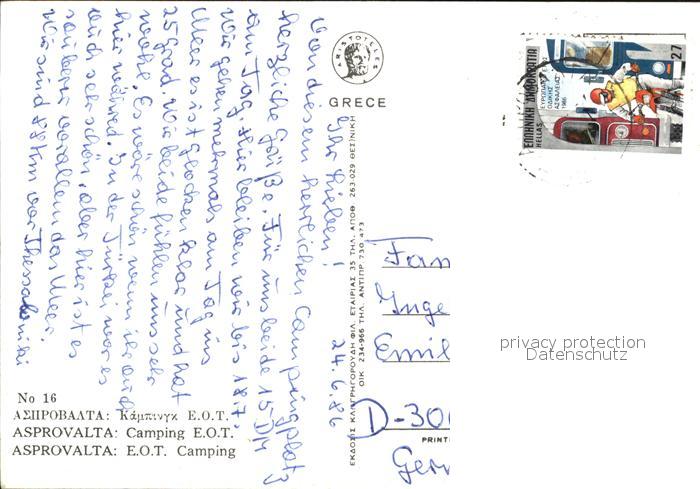 24.6.86
Ihr Lieben!
Von diesem herrlichen Campingplatz
herzliche Grüße. Für uns beide 15 DM
am Tag. Hier bleiben wir bis 18.7.
Wir gehen mehrmals am Tag ins
Meer es ist glockenklar und hat
25 grad. Wir beide fühlen uns sehr
wohl. Es wäre schön wenn ihr auch
hier wäret. In der Türkei war es
auch sehr schön, aber hier ist es
sauberer vor allem das Meer.
Wir sind 88km vor Thessaloniki
ARISTOTELES
GREECE
ΕΚΔΟΣΙΣ ΚΛ. ΓΡΗΓΟΡΟΥΔΗ ΦΙΛ. ΕΤΑΙΡΙΑΣ 35 ΤΗΛ. ΑΠΟΘ. 263.029 ΘΕΣ/ΝΙΚΗ
ΟΙΚ. 234-966 ΤΗΛ. ΑΝΤΙΠΡ. 730.473
ΕΛΛΗΝΙΚΗ ΔΗΜΟΚΡΑΤΙΑ
HELLAS
ΕΥΡΩΠΑΪΚΟ ΕΤΟΣ
ΟΔΙΚΗΣ
ΑΣΦΑΛΕΙΑΣ
1986
27
Fam
Inge
Emil
D-300
Ger
PRINT
privacy protection
Datenschutz
No 16
ΑΣΠΡΟΒΑΛΤΑ: Κάμπινγκ Ε.Ο.Τ.
ASPROVALTA: Camping E.O.T.
ASPROVALTA: E.O.T. Camping